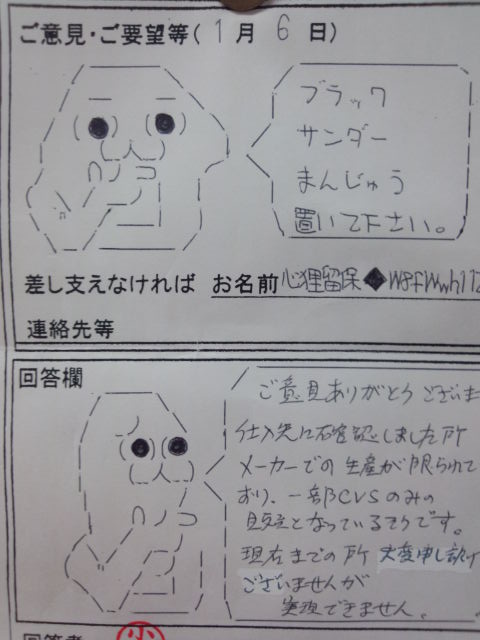 ご意見・ご要望等(1月6日)
ブラック
サンダー
まんじゅう
置いて下さい。
差し支えなければ お名前 心狸留保◆
連絡先等
回答欄
ご意見ありがとうございま
仕入先に確認しました所
メーカーでの生産が限られて
おり、一部CVSのみの
販売となっているそうです。
現在までの所 大変申し訳
ございませんが
実現できません。
回答者 小